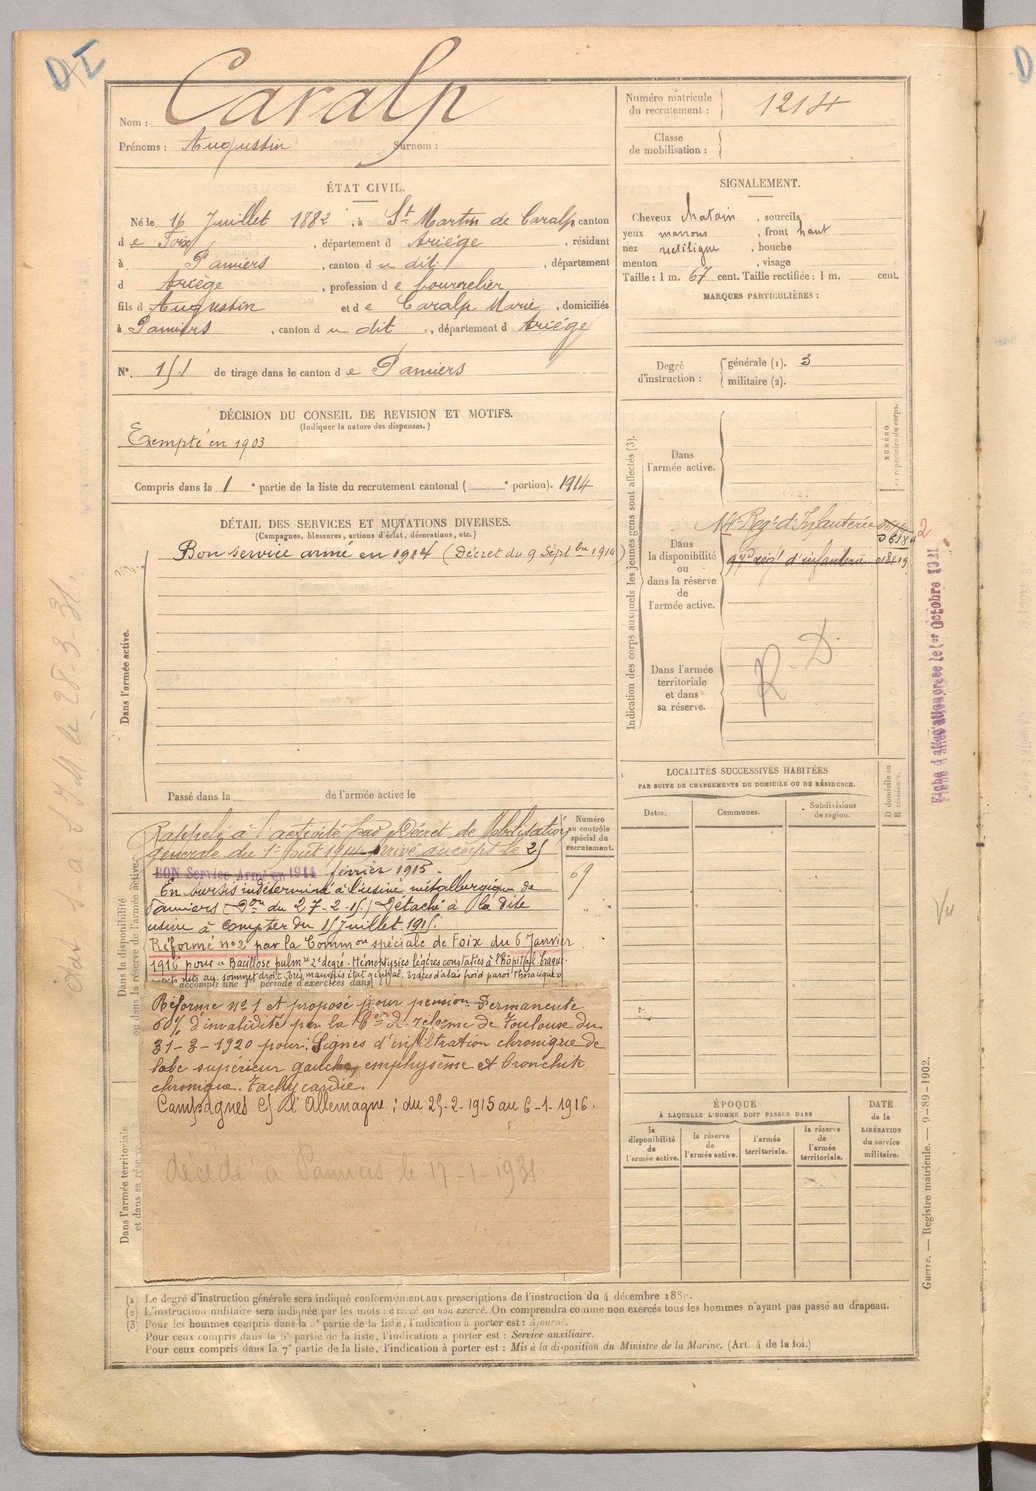 D I
Nom : Caralp
Prénoms : Augustin Surnom :
Numéro matricule du recrutement : 1214
Classe de mobilisation :
ÉTAT CIVIL.
Né le 16 Juillet 1882, à St Martin de Caralp canton
d e Foix, département d Ariège, résidant
à Pamiers, canton d u dit, département
d Ariège, profession d e bourrelier
fils d Augustin et d e Caralp Marie, domiciliés
à Pamiers, canton d u dit, département d Ariége
N° 151 de tirage dans le canton d e Pamiers
SIGNALEMENT.
Cheveux chatain, sourcils
yeux marrons, front haut
nez rectiligne, bouche
menton, visage
Taille : 1 m. 67 cent. Taille rectifiée : 1 m. cent.
MARQUES PARTICULIÈRES :
Degré d'instruction : générale (1). 3
militaire (2).
DÉCISION DU CONSEIL DE REVISION ET MOTIFS.
(Indiquer la nature des dispenses.)
Exempté en 1903
Compris dans la 1 e partie de la liste du recrutement cantonal ( e portion). 1914
DÉTAIL DES SERVICES ET MUTATIONS DIVERSES.
(Campagnes, blessures, actions d'éclat, décorations, etc.)
Dans l'armée active.
Bon service armé en 1914 (Décret du 9 Septbre 1914)
Passé dans la de l'armée active le
Indication des corps auxquels les jeunes gens sont affectés (3).
NUMÉRO
Dans l'armée active.
Dans la disponibilité ou dans la réserve de l'armée active.
Regt d'Infanterie
regt d'infanterie
Dans l'armée territoriale et dans sa réserve.
R. D.
Fiche d'affectation créée le 1er Octobre 1921
LOCALITÉS SUCCESSIVES HABITÉES
PAR SUITE DE CHANGEMENTS DE DOMICILE OU DE RÉSIDENCE.
Dates. Communes. Subdivisions de région. D domicile ou R résidence.
Dans la disponibilité ou dans la réserve de l'armée active.
Numéro au contrôle spécial du recrutement.
69
Rappelé à l'activité par Décret de Mobilisation
générale du 1er Août 1914. Arrivé au corps le 25
BON Service Armé en 1914 février 1915.
En sursis indéterminé à l'usine métallurgique de
Pamiers (Don du 27-2-15) Détaché à la dite
usine à compter du 15 juillet 1915.
Réformé n°2 par la Common spéciale de Foix du 6 Janvier
1916 pour "Bacillose pulmre 2e degré. Hémoptysies légères constatées à l'hôpital
au sommet droit. très mauvais état général.
accompli une période d'exercices dans
Réforme n°1 et proposé pour pension Permanente
60% d'invalidité par la Con de réforme de Toulouse du
31-3-1920 pour: Signes d'infiltration chronique de
lobe supérieur gauche, emphysème et bronchite
chronique. tachycardie.
Campagnes C/ l'Allemagne : du 25-2-1915 au 6-1-1916.
décédé à Pamiers le 17-1-1931.
Dans l'armée territoriale et dans sa réserve
ÉPOQUE
À LAQUELLE L'HOMME DOIT PASSER DANS
la disponibilité de l'armée active. la réserve de l'armée active. l'armée territoriale. la réserve de l'armée territoriale.
DATE de la LIBÉRATION du service militaire.
Vu
Guerre. — Registre matricule. — 9-89-1902.
(1) Le degré d'instruction générale sera indiqué conformément aux prescriptions de l'instruction du 4 décembre 1889.
(2) L'instruction militaire sera indiquée par les mots : exercé ou non exercé. On comprendra comme non exercés tous les hommes n'ayant pas passé au drapeau.
(3) Pour les hommes compris dans la partie de la liste, l'indication à porter est : Ajourné.
Pour ceux compris dans la partie de la liste, l'indication à porter est : Service auxiliaire.
Pour ceux compris dans la 7e partie de la liste, l'indication à porter est : Mis à la disposition du Ministre de la Marine. (Art. 4 de la loi.)